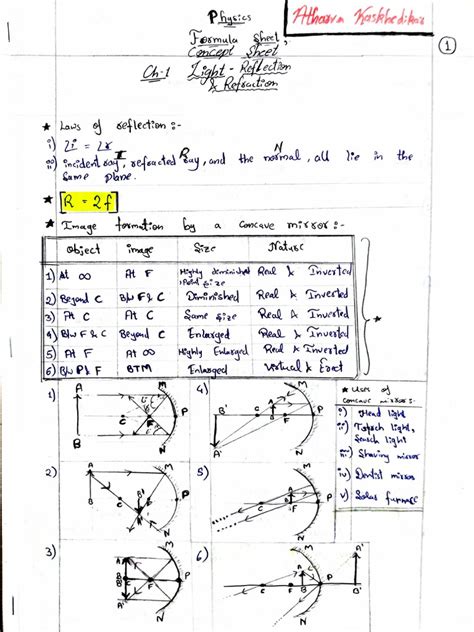 Physics
Atharva Kaskhedikar
1
Formula Sheet,
Concept Sheet
Ch-1 Light - Reflection
& Refraction
★ Laws of reflection :-
i) ∠i = ∠r
ii) incident ray, I refracted ray, R and the normal, N all lie in the
same plane.
★ [R = 2f]
★ Image formation by a concave mirror :-
Object image Size Nature
1) At ∞ At F Highly diminished Real & Inverted
Point size
2) Beyond C B/w F & C Diminished Real & Inverted
3) At C At C Same size Real & Inverted
4) B/w F & C Beyond C Enlarged Real & Inverted
5) At F At ∞ Highly Enlarged Real & Inverted
6) B/w P & F BTM Enlarged Virtual & Erect
★
1)
M
C
F
P
N
4)
M
A
B'
C
B
F
P
A'
N
★ Uses of
concave mirrors:
i) Head light
ii) Torch light,
Search light
iii) Shaving mirror
iv) Dentist mirror
v) Solar furnace
2)
A
M
B
C
B'
F
P
A'
N
5)
M
A
C
B
F
P
N
3)
M
A
B
C
F
P
A'
N
6)
M
A
A'
C
F
B
P
B'
N